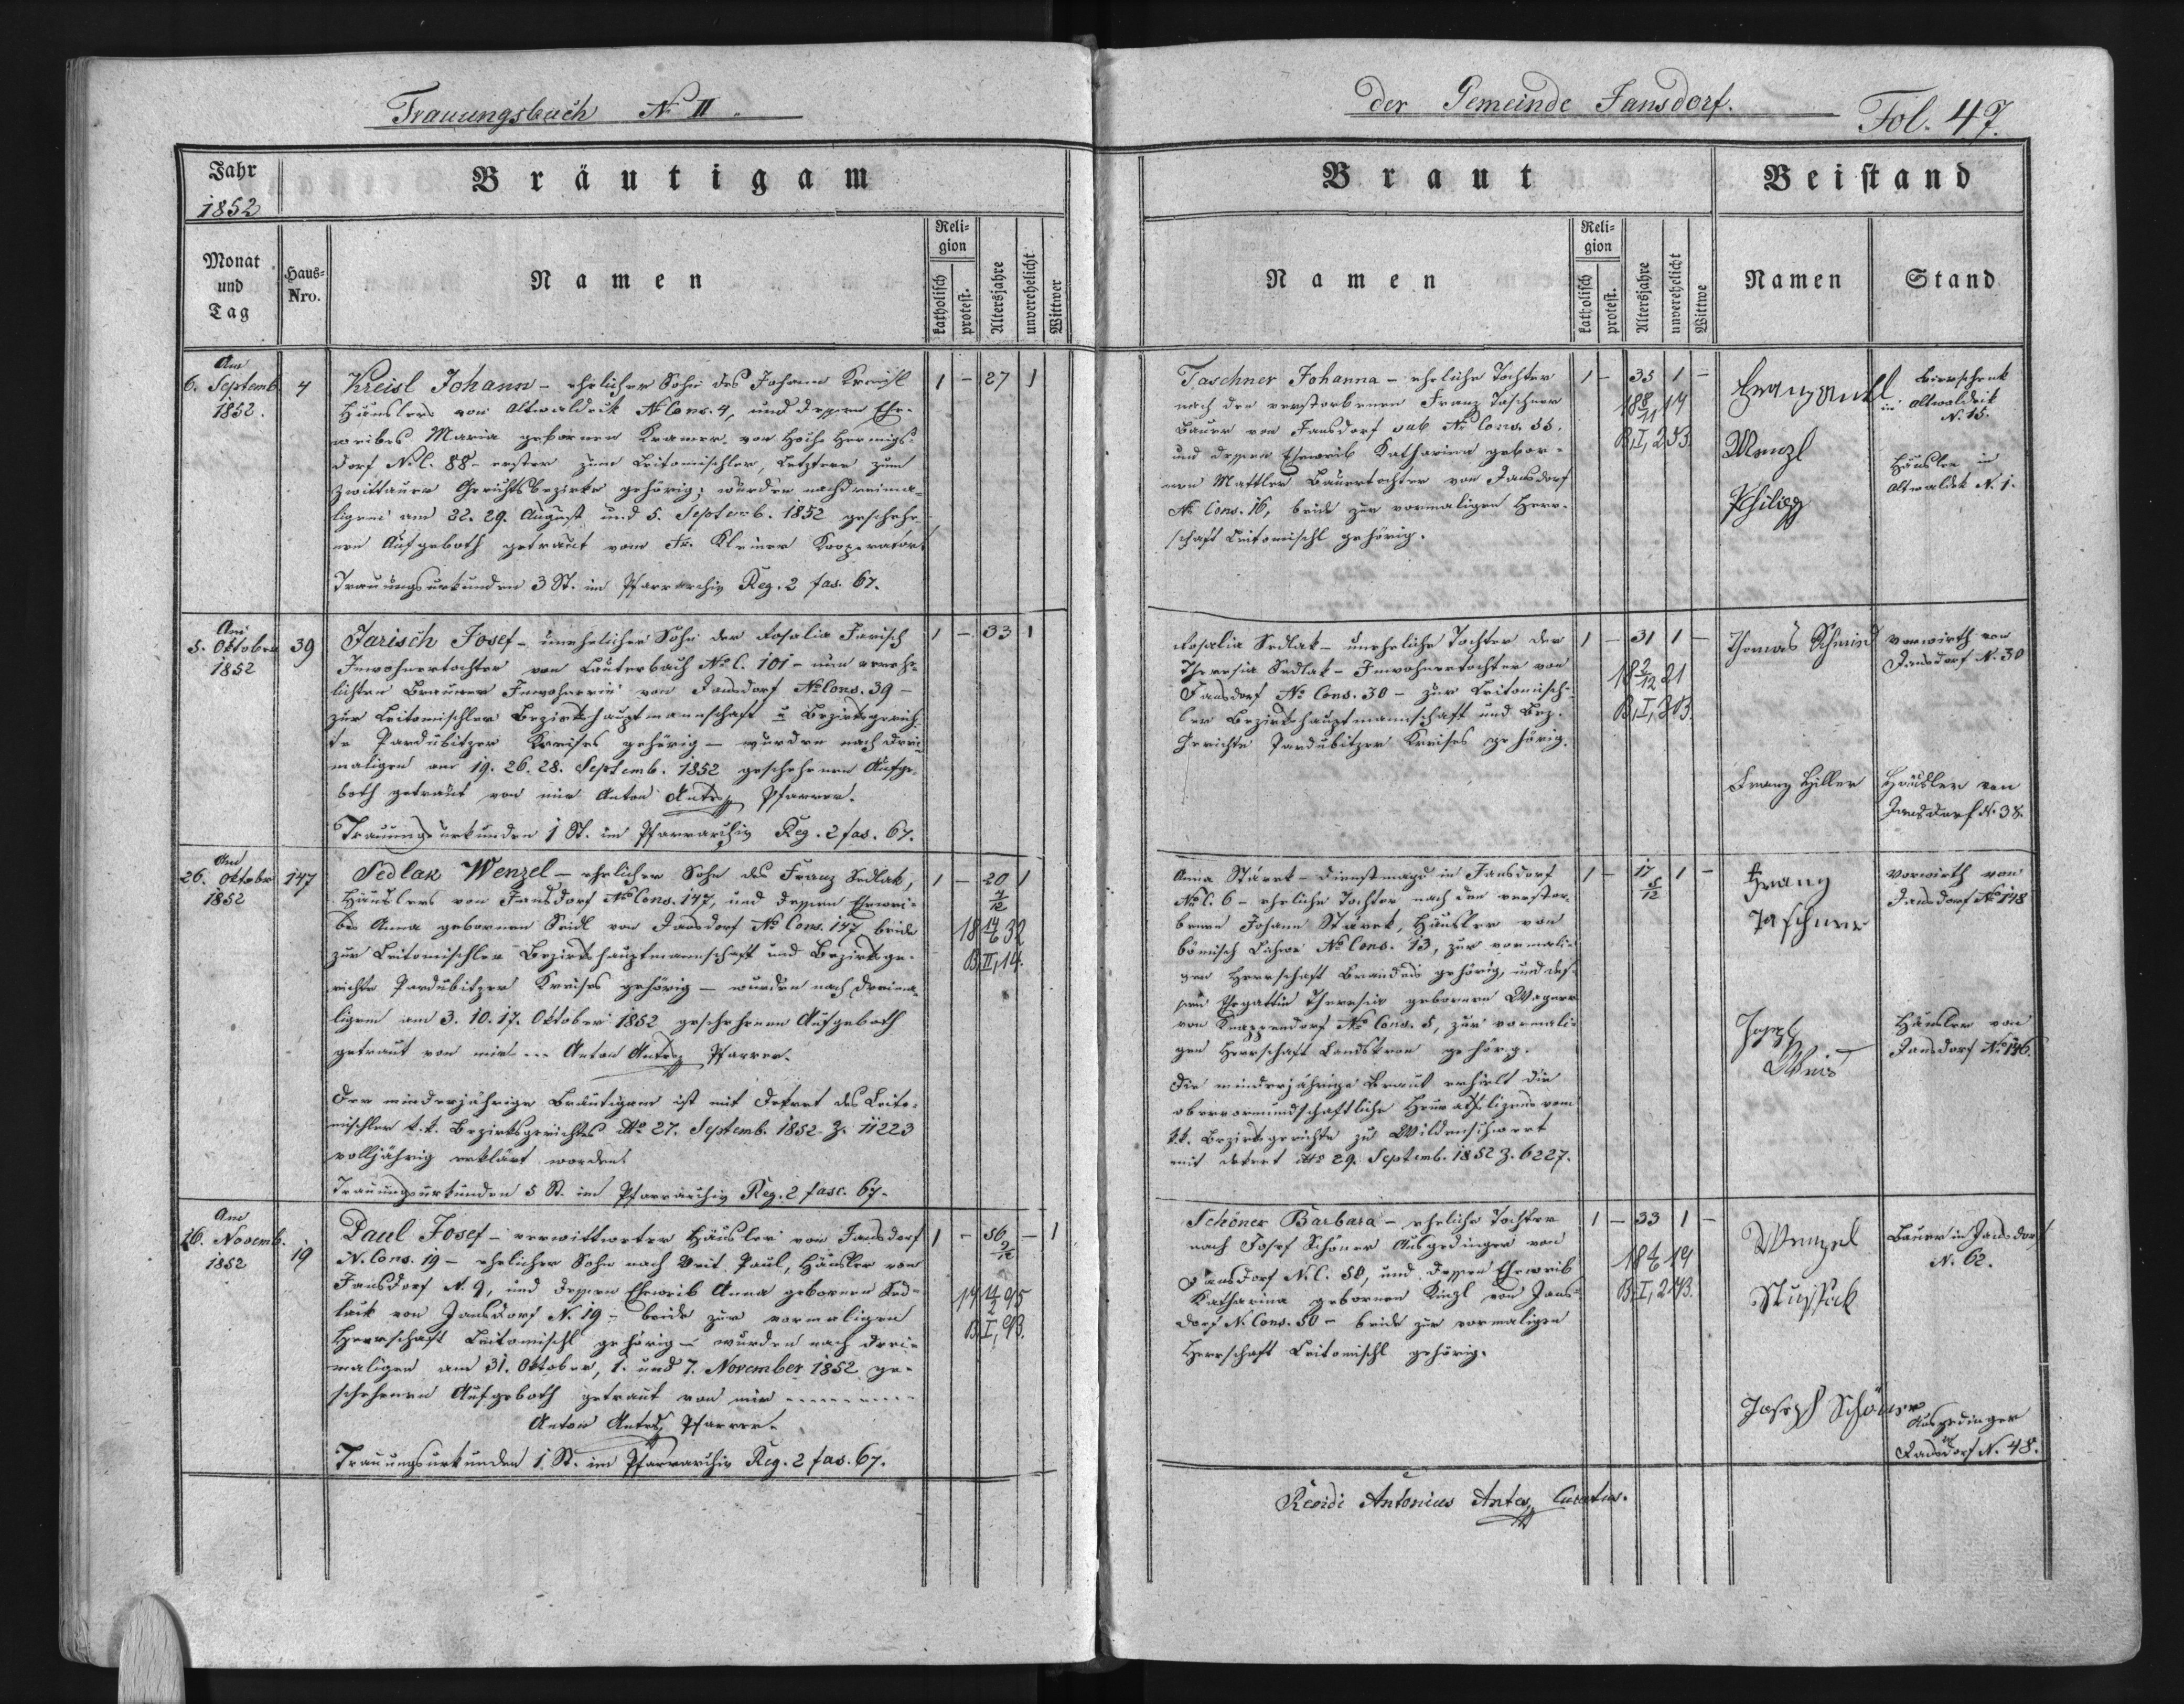 Trauungsbuch No II.
Jahr
1852
Bräutigam
Monat
und
Tag
Haus-
Nro.
Namen
Reli-
gion
katholisch
protest.
Altersjahre
unverehelicht
Wittwer
Am
6. Septemb.
1852.
4
Kreisl Johann – ehelicher Sohn des Johann Kreisl
Häuslers von Altwaldek No Cons. 4, und dessen Ehe-
weibes Maria gebornen Kramer von
dorf N.C. 88 – erster zum Leitomischler, Letztere zum
Zwittauer Gerichtsbezirke gehörig; wurden nach dreima-
ligem am 22. 29. August und 5. Septemb. 1852 geschehe-
nen Aufgeboth getraut vom Fr. Kleiner Kooperator
Trauungsurkunden 3 St. im Pfarrarchiv Reg. 2 fas. 67.
1 – 27 1
Am
5. Oktober
1852
39
Jarisch Josef – unehelicher Sohn der Rosalia Jarisch
Inwohnertochter von Lauterbach No C. 101 – nun vereh-
lichten Brauner Inwohnerin von Jansdorf No Cons. 39 –
zur Leitomischler Bezirkshauptmannschaft u Bezirksgerich-
te Pardubitzer Kreises gehörig – wurden nach drei-
maligen am 19. 26. 28. Septemb. 1852 geschehenen Aufge-
both getraut von mir Anton Antes Pfarrer.
Trauungsurkunden 1 St. im Pfarrarchiv Reg. 2 fas. 67.
1 – 33 1
Am
26. Oktober
1852
147
Sedlak Wenzel – ehelicher Sohn des Franz Sedlak,
Häuslers von Jansdorf No Cons. 147, und dessen Ehewei-
bes Anna gebornen Seidl von Jansdorf No Cons. 147 beide
zur Leitomischler Bezirkshauptmannschaft und Bezirksge-
richte Pardubitzer Kreises gehörig – wurden nach dreima-
ligem am 3. 10. 17. Oktober 1852 geschehenen Aufgeboth
getraut von mir --- Anton Antes Pfarrer.
Der minderjährige Bräutigam ist mit Dekret des Leito-
mischler k.k. Bezirksgerichtes dto 27. Septemb. 1852 Z. 11223
volljährig erklärt worden.
Trauungsurkunden 5 St. im Pfarrarchiv Reg. 2 fasc. 67.
1 – 20 1
18 14/6 32
B, II, 14.
Am
16. Novemb.
1852
19
Paul Josef – verwittweter Häusler von Jansdorf
N. Cons. 19 – ehelicher Sohn nach Veit Paul, Häusler von
Jansdorf N. 9, und dessen Eheweib Anna gebornen Sed-
lak von Jansdorf N. 19 – beide zur vormaligen
Herrschaft Leitomischl gehörig – wurden nach drei-
maligen am 31. Oktober, 1. und 7. November 1852 ge-
schehenen Aufgeboth getraut von mir ---------
Anton Antes Pfarrer.
Trauungsurkunden 1 St. im Pfarrarchiv Reg. 2 fas. 67.
1 – 56 9/12 – 1
B, I, 93.
der Gemeinde Jansdorf.
Fol. 47.
Braut
Beistand
Namen
Reli-
gion
katholisch
protest.
Altersjahre
unverehelicht
Wittwe
Namen
Stand
Taschner Johanna – eheliche Tochter
nach den verstorbenen Franz Taschner
Bauer von Jansdorf sub No Cons. 55.
und dessen Eheweib Katharina gebor-
nen Mattler Bauertochter von Jansdorf
No Cons. 16, beide zur vormaligen Herr-
schaft Leitomischl gehörig.
1 – 35 1 –
18 8/11 17
B, I, 253.
Franz Antl
Bierschenk
in Altwaldek
N. 15.
Wenzl
Philipp
Häusler in
Altwaldek N. 1.
Rosalia Sedlak – uneheliche Tochter der
Theresia Sedlak – Inwohnertochter von
Jansdorf No Cons. 30 – zur Leitomisch-
ler Bezirkshauptmannschaft und Bez.
Gerichte Pardubitzer Kreises gehörig.
1 – 31 1 –
18 2/12 21
B, I, 303.
Thomas Schmid
Vorwirth von
Jansdorf N. 30
Franz Hiller
Häusler von
Jansdorf N. 38.
Anna Stärek – Dienstmagd in Jansdorf
No C. 6 – eheliche Tochter nach den verstor-
benen Johann Stärek, Häusler von
bömisch No Cons. 13, zur vormali-
gen Herrschaft Brandeis gehörig, und des-
sen Ehegattin Theresia gebornen Wagner
von Knappendorf No Cons. 5, zur vormali-
gen Herrschaft Landskron gehörig.
Die minderjährige Braut erhielt die
obervormundschaftliche Heurathslizenz vom
k.k. Bezirksgerichte zu Wildenschwert
mit Dekret dto 29. Septemb. 1852 Z. 6227.
1 – 17 5/12 1 –
Franz
Taschner
Vorwirth von
Jansdorf No 148
Joseph
Weis
Häusler von
Jansdorf No 146.
Schöner Barbara – eheliche Tochter
nach Josef Schöner Ausgedinger von
Jansdorf N.C. 50, und dessen Eheweib
Katharina gebornen Kinzl von Jans-
dorf N. Cons. 50 – beide zur vormaligen
Herrschaft Leitomischl gehörig.
1 – 33 1 –
B, I, 243.
Wenzel
Bauer in Jansdorf
N. 62.
Joseph Schöner
Ausgedinger
in
Jansdorf N. 48.
Revidi Antonius Antes, Curatus.